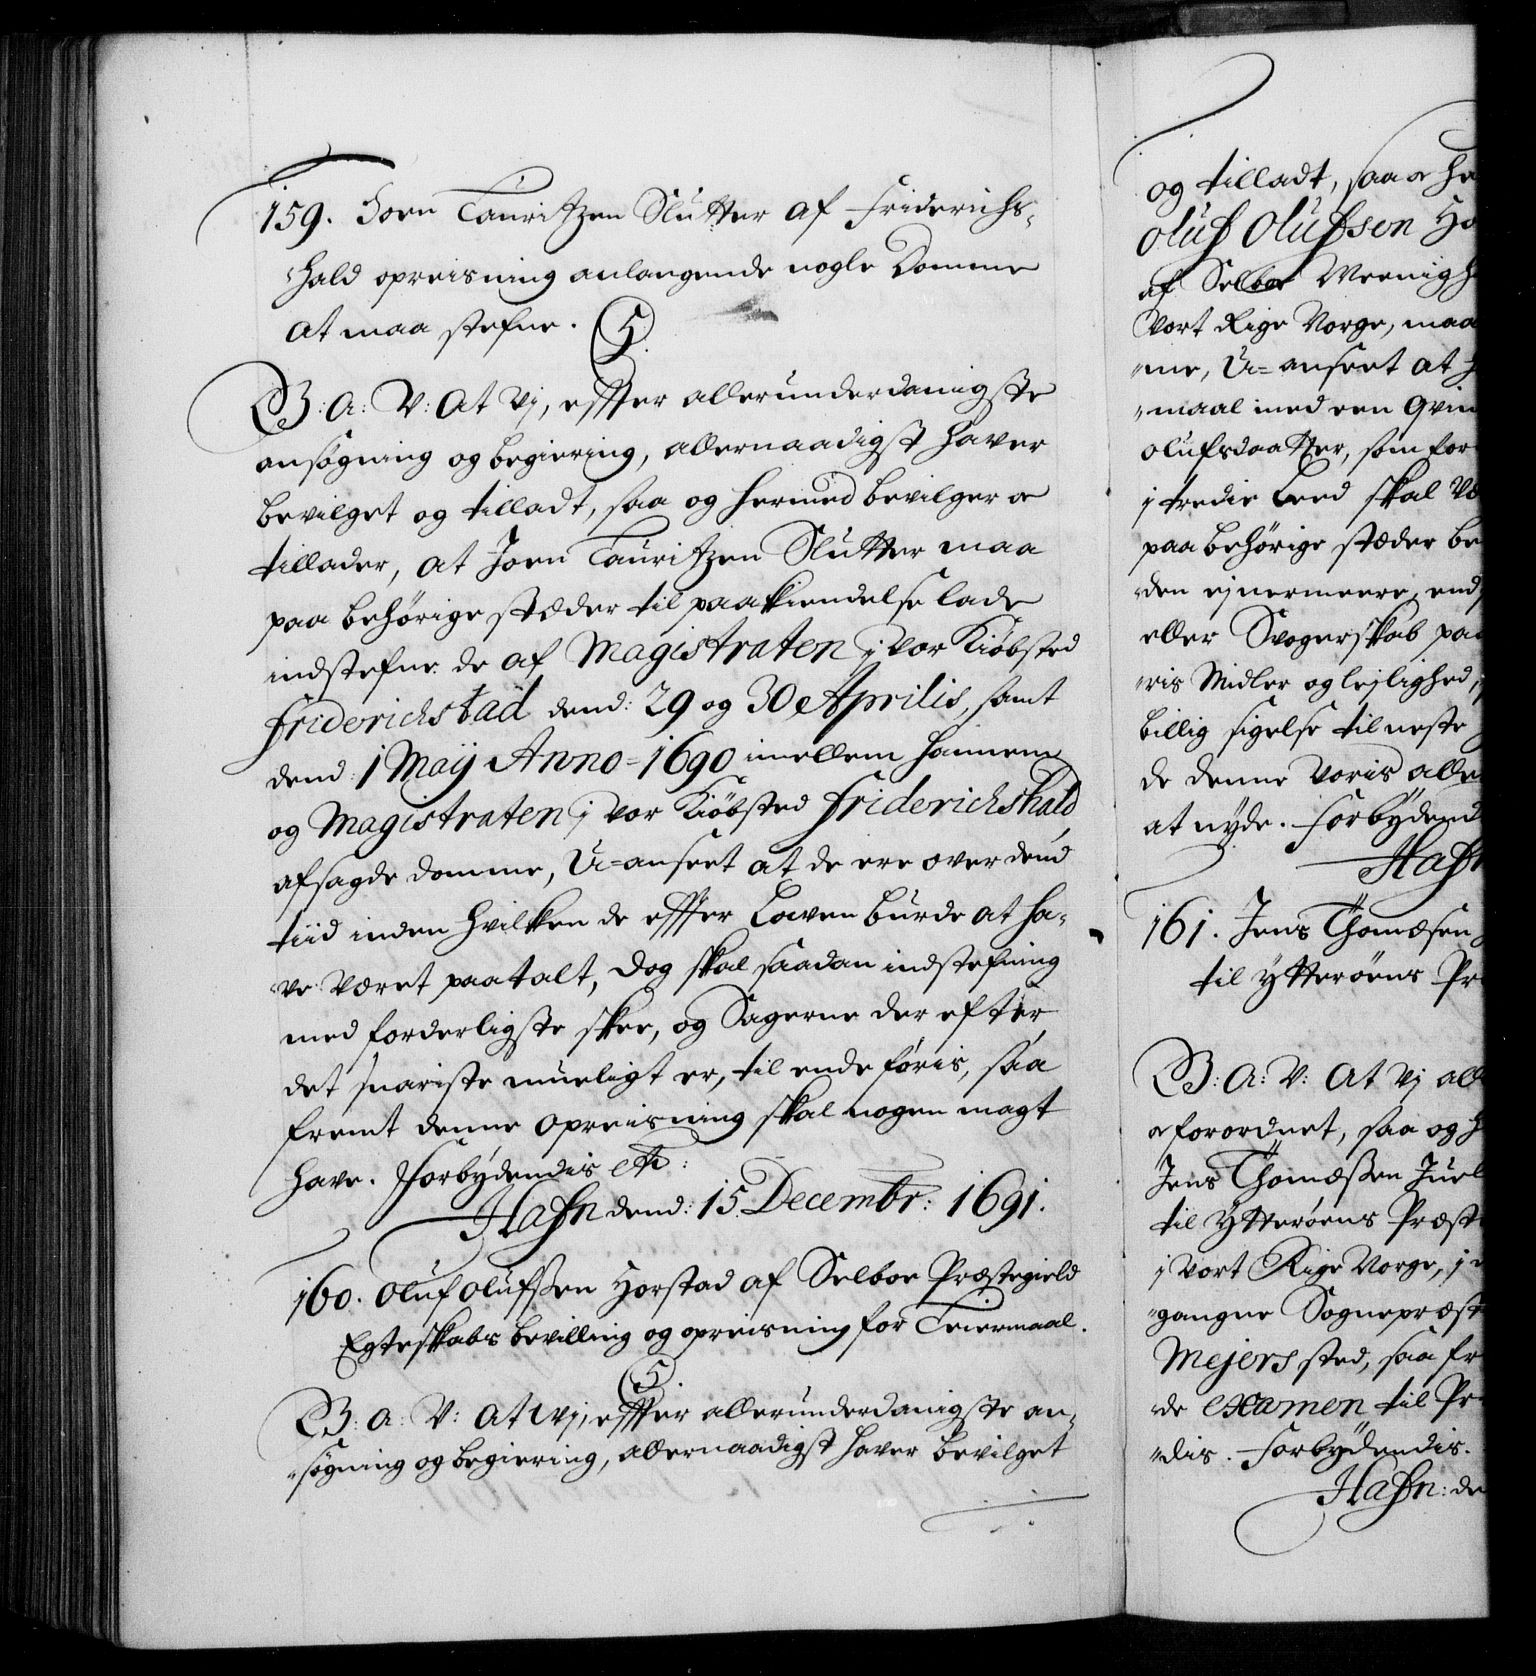 159. Joen Lauritzen Slutter af Friderichs-
hald opreisning anlangende nogle Domme
at maa stefne. (5)
G: A: V: At Vj, effter allerunderdanigste
ansøgning og begiering, allernaadigst hafver
bevilget og tilladt, saa og hermed bevilger oc
tillader, at Joen Lauritzen Slutter maa
paa behørige stæder til paakiendelse lade
indstefne de af Magistraten j vor Kiøbsted
friderichstad dend: 29 og 30 Aprilis, samt
dend: 1 Maij Anno=1690 imellem hannem
og Magistraten j vor Kiøbsted friderichshald
afsagde domme, U=anseet at de ere over dend
tiid inden hvilken de effter Loven burde at ha-
ve været paatalt, dog skal saadan indstefning
med forderligste skee, og Sagerne der efter
det snariste mueligt er, til ende føris, saa
fremt denne opreisning skal nogen magt
have. Forbydendis etc:
Hafn dend: 15. Decembr: 1691.
160. Oluf Olufssen Horstad af Selboe Præstegield
Egteskabs bevilling og opreisning for Leiermaal.
(5)
G: A: V: At Vj, effter allerunderdanigste an-
søgning og begiering, allernaadigst hafver bevilget
og tilladt, saa oc he
Oluf Olufsøn Ho
af Selboe Meenigh
Vort Rige Norge, maa
me, U=anseet at h
maal med een Qvin
Olufsdaatter, som for
j tredie Leed skal Væ
paa behørige stæder be
den ej nermeere, end
eller Svogerskab paa
ris Midler og lejlighed,
billig sigelse til neste
de denne Voris alle
at nyde. Forbydend
Hafn
161. Jens Thomæsen
til Ytterøens Pr
G: A: V: At Vj all
oc forordnet, saa og h
Jens Thomæssen Juel
til Ytterøens Præst
j Vort Rige Norge, j
gangne Sognepræst
Mejers sted, saa fr
de examen til Pr
dis. Forbydendis.
Hafn: de